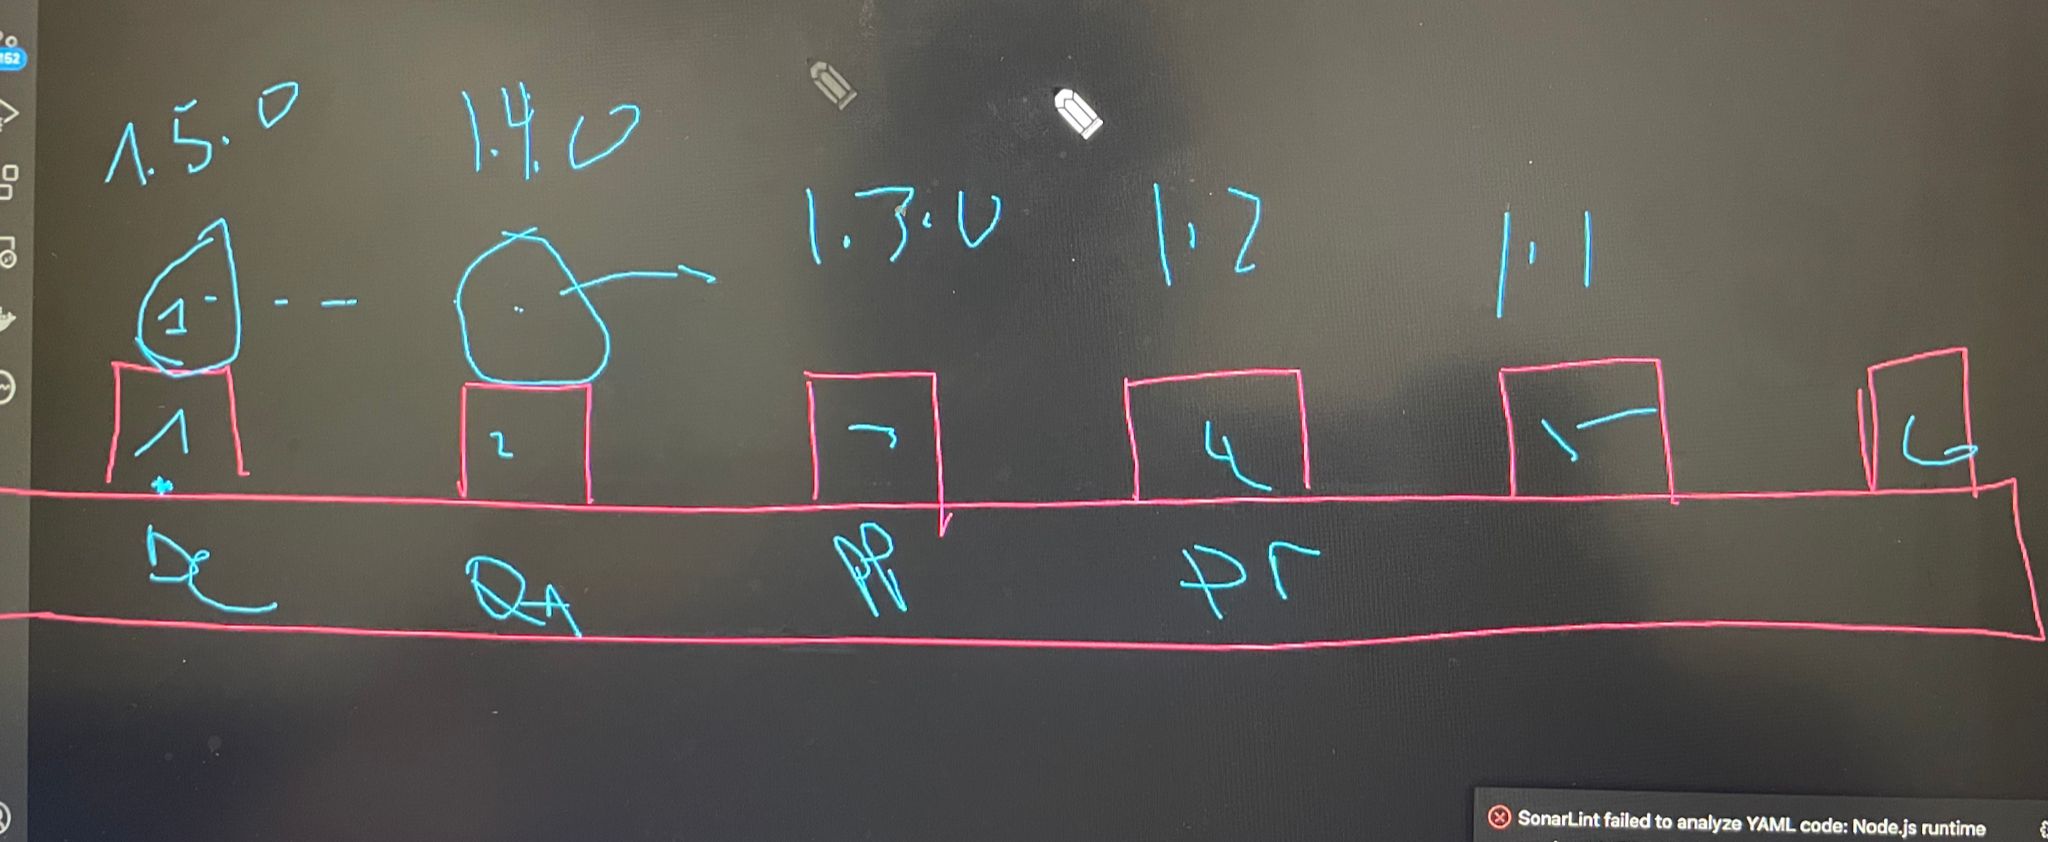 1.5.0 1.4.0
1.3.0 1.2 1.1
1
1 2 4
QA PP Pr
152
SonarLint failed to analyze YAML code: Node.js runtime